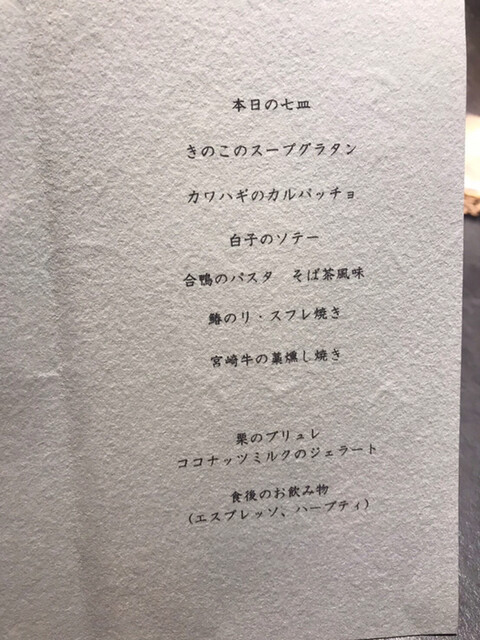 本日の七皿
きのこのスープグラタン
カワハギのカルパッチョ
白子のソテー
合鴨のパスタ　そば茶風味
鰆のリ・スフレ焼き
宮崎牛の藁燻し焼き
栗のブリュレ
ココナッツミルクのジェラート
食後のお飲み物
(エスプレッソ、ハーブティ)